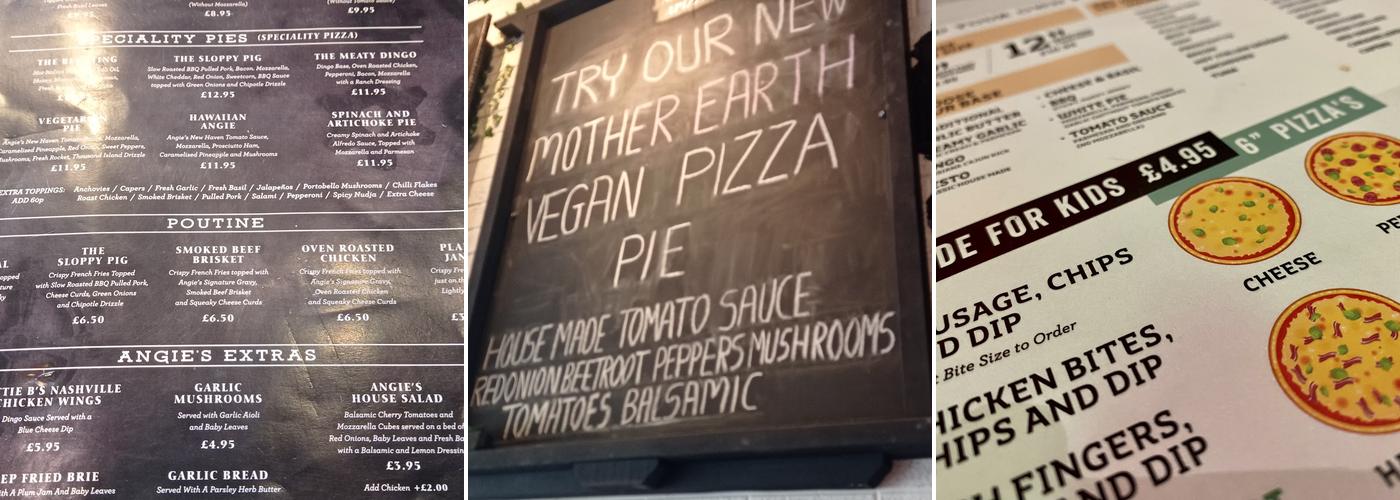 Fresh Basil Leaves
£9.95
(Without Mozzarella)
£8.95
(Without Tomato Sauce)
£9.95
SPECIALITY PIES (SPECIALITY PIZZA)
THE
THE SLOPPY PIG
Slow Roasted BBQ Pulled Pork, Bacon, Mozzarella,
White Cheddar, Red Onion, Sweetcorn, BBQ Sauce
topped with Green Onions and Chipotle Drizzle
£12.95
THE MEATY DINGO
Dingo Base, Oven Roasted Chicken,
Pepperoni, Bacon, Mozzarella
with a Ranch Dressing
£11.95
VEGETARIAN
PIE
Angie's New Haven Tomato Sauce, Mozzarella,
Caramelised Pineapple, Red Onion, Sweet Peppers,
Mushrooms, Fresh Rocket, Thousand Island Drizzle
£11.95
HAWAIIAN
ANGIE
Angie's New Haven Tomato Sauce,
Mozzarella, Prosciutto Ham,
Caramelised Pineapple and Mushrooms
£11.95
SPINACH AND
ARTICHOKE PIE
Creamy Spinach and Artichoke
Alfredo Sauce, Topped with
Mozzarella and Parmesan
£11.95
EXTRA TOPPINGS:
ADD 60p
Anchovies / Capers / Fresh Garlic / Fresh Basil / Jalapeños / Portobello Mushrooms / Chilli Flakes
Roast Chicken / Smoked Brisket / Pulled Pork / Salami / Pepperoni / Spicy Nudja / Extra Cheese
POUTINE
THE
SLOPPY PIG
Crispy French Fries Topped
with Slow Roasted BBQ Pulled Pork,
Cheese Curds, Green Onions
and Chipotle Drizzle
£6.50
SMOKED BEEF
BRISKET
Crispy French Fries topped with
Angie's Signature Gravy,
Smoked Beef Brisket
and Squeaky Cheese Curds
£6.50
OVEN ROASTED
CHICKEN
Crispy French Fries topped with
Angie's Signature Gravy,
Oven Roasted Chicken
and Squeaky Cheese Curds
£6.50
ANGIE'S EXTRAS
TIE B'S NASHVILLE
CHICKEN WINGS
Dingo Sauce Served with a
Blue Cheese Dip
£5.95
GARLIC
MUSHROOMS
Served with Garlic Aioli
and Baby Leaves
£4.95
ANGIE'S
HOUSE SALAD
Balsamic Cherry Tomatoes and
Mozzarella Cubes served on a bed of
Red Onions, Baby Leaves and Fresh Ba
with a Balsamic and Lemon Dressin
£3.95
Add Chicken +£2.00
EP FRIED BRIE
th A Plum Jam And Baby Leaves
GARLIC BREAD
Served With A Parsley Herb Butter
TRY OUR NEW
MOTHER EARTH
VEGAN PIZZA
PIE
HOUSE MADE TOMATO SAUCE
RED ONION BEETROOT PEPPERS MUSHROOMS
TOMATOES BALSAMIC
12"
CHEESE & BASIL
BBQ
WHITE PIE
TOMATO SAUCE
DE FOR KIDS £4.95
6" PIZZA'S
USAGE, CHIPS
D DIP
Bite Size to Order
HICKEN BITES,
HIPS AND DIP
H FINGERS,
AND DIP
CHEESE
PE